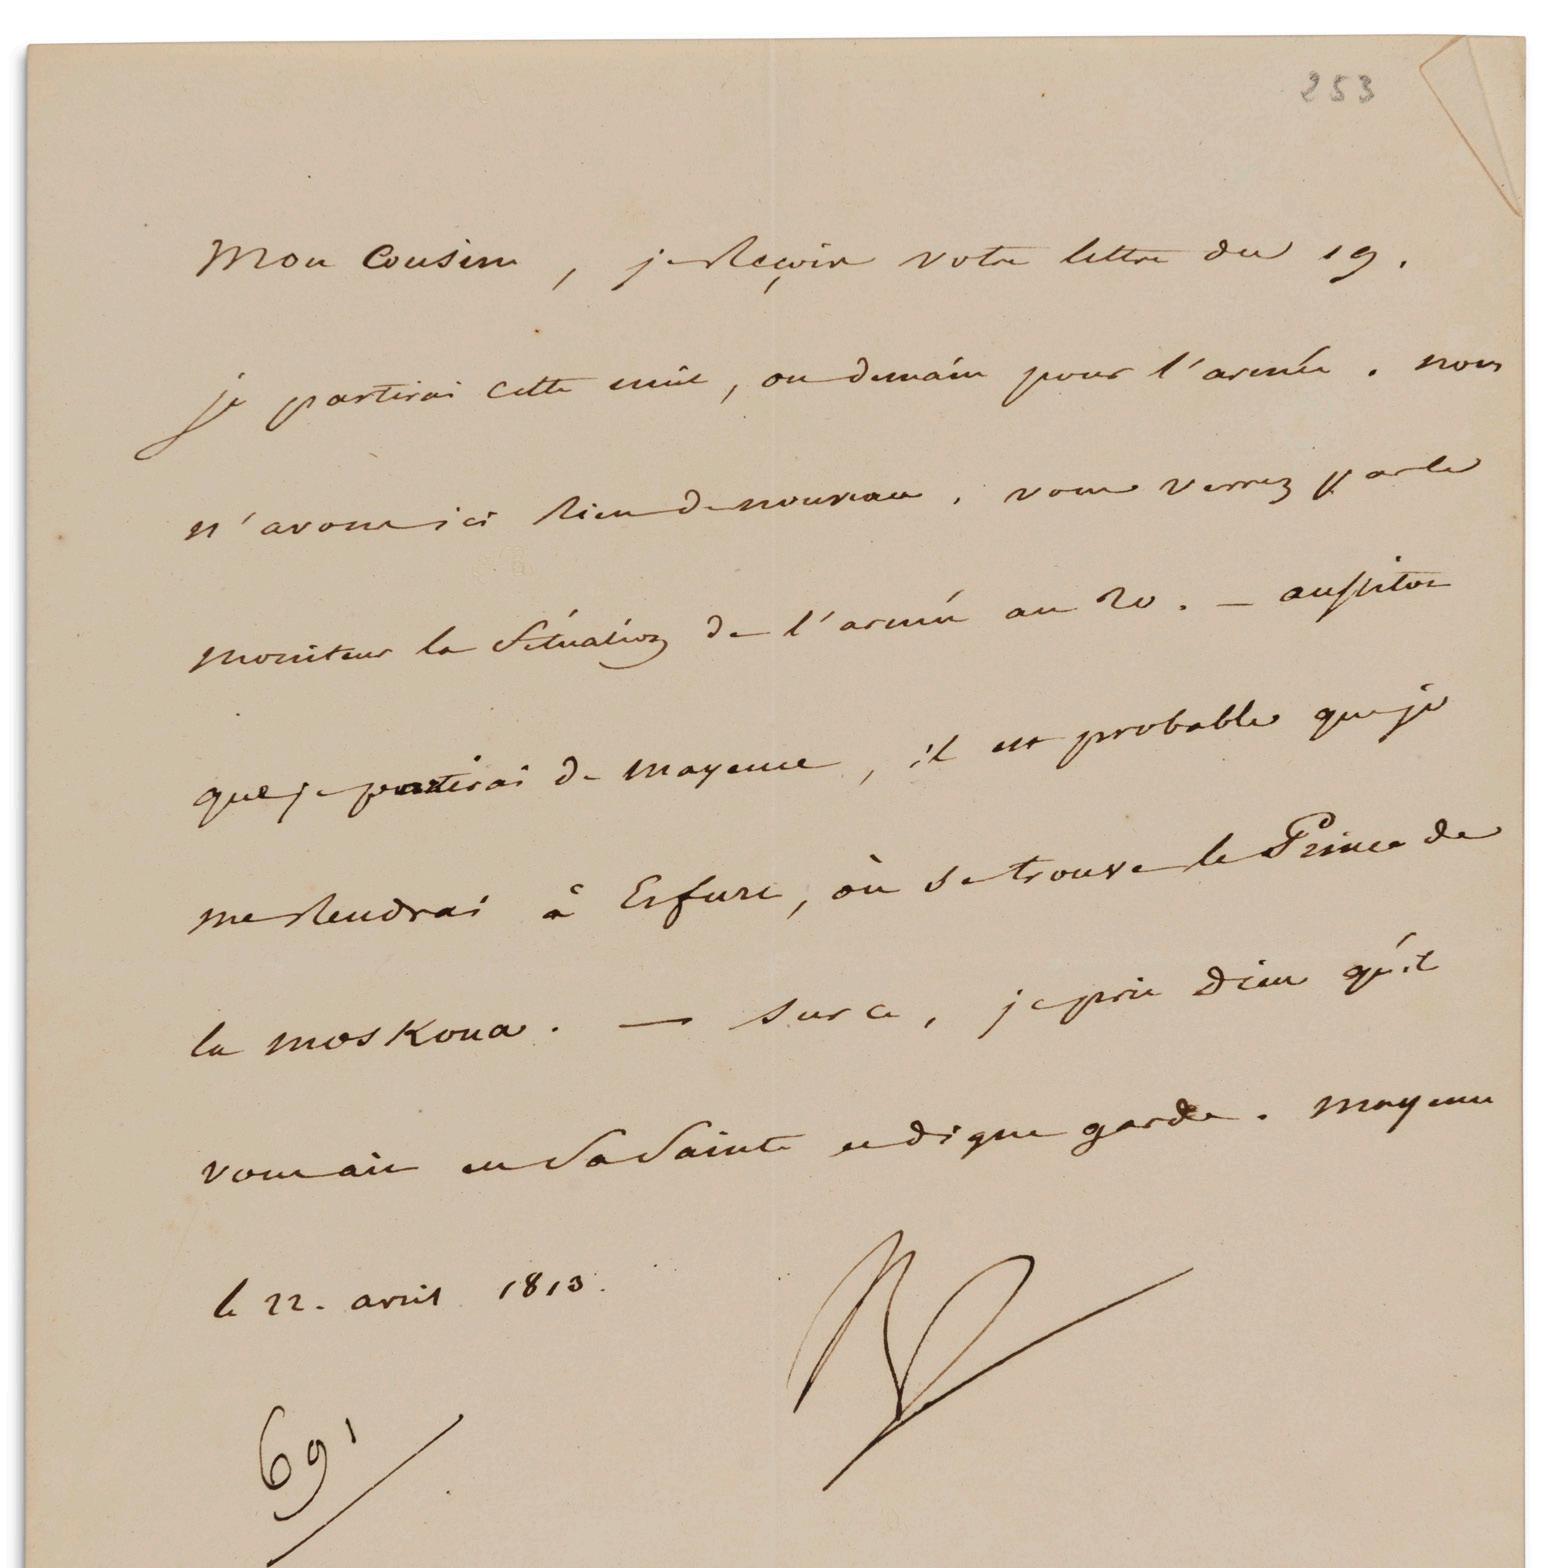 253
Mon Cousin, je reçois votre lettre du 19.
je partirai cette nuit, ou demain pour l'armée. nous
n'avons ici rien de nouveau. vous verrez par le
moniteur la Situation de l'armée au 20. — aussitôt
que je partirai de mayence, il est probable que je
me rendrai à Erfurt, où se trouve le Prince de
la moskoua. — sur ce, je prie Dieu qu'il
vous ait en Sa Sainte et digne garde. mayence
le 22. avril 1813.
691